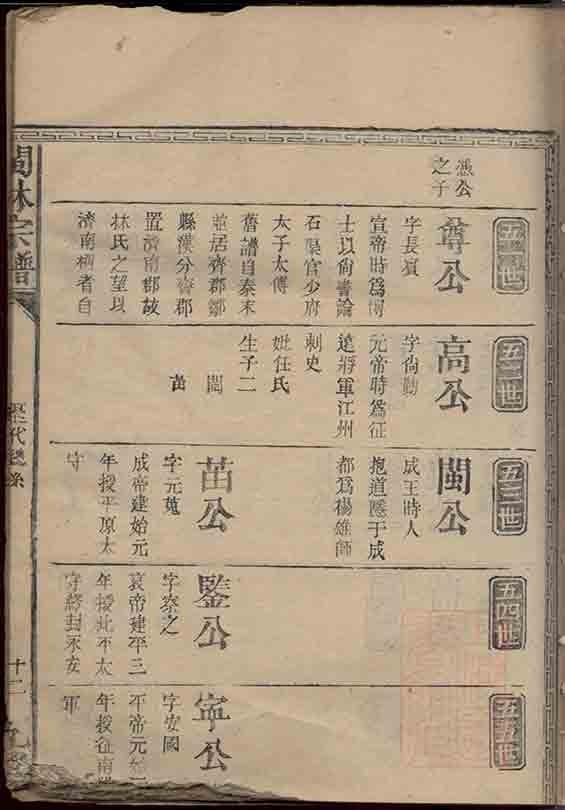 五一世
憑公
之子
尊公
字長賓
宣帝時爲博
士以尚書論
石渠官少府
太子太傅
舊譜自秦末
並居齊郡鄒
縣漢分齊郡
置濟南郡故
林氏之望以
濟南稱者自
五二世
高公
字尚勤
元帝時爲征
遠將軍江州
刺史
妣任氏
生子二
閩
苗
五三世
閩公
成王時人
抱道隱于成
都爲楊雄師
苗公
字元蒐
成帝建始元
年授平原太
守
五四世
鑒公
字察之
哀帝建平三
年授北平太
守終封永安
五五世
寕公
字安國
平帝元始
年授征南
軍
閩林宗譜
歷代
十二